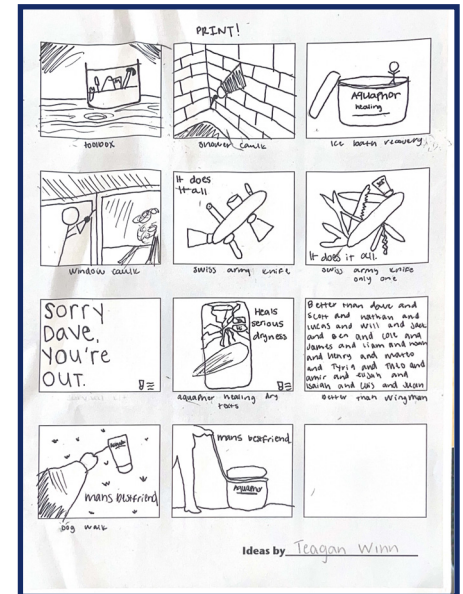 PRINT!
toolbox
shower caulk
Aquaphor
healing
ice bath recovery
window caulk
It does
it all
swiss army knife
It does it all.
swiss army knife
only one
Sorry
Dave,
You're
OUT.
Heals
serious
dryness
aquaphor healing dry
texts
Better than dave and
Scott and nathan and
lucas and will and Jack
and Ben and Cole and
James and Liam and Noah
and Henry and Mateo
and Tyris and Theo and
amir and Elijah and
Isaiah and Luis and Juan
better than wingman
mans bestfriend
Dog walk
mans bestfriend
Aquaphor
Ideas by Teagan Winn